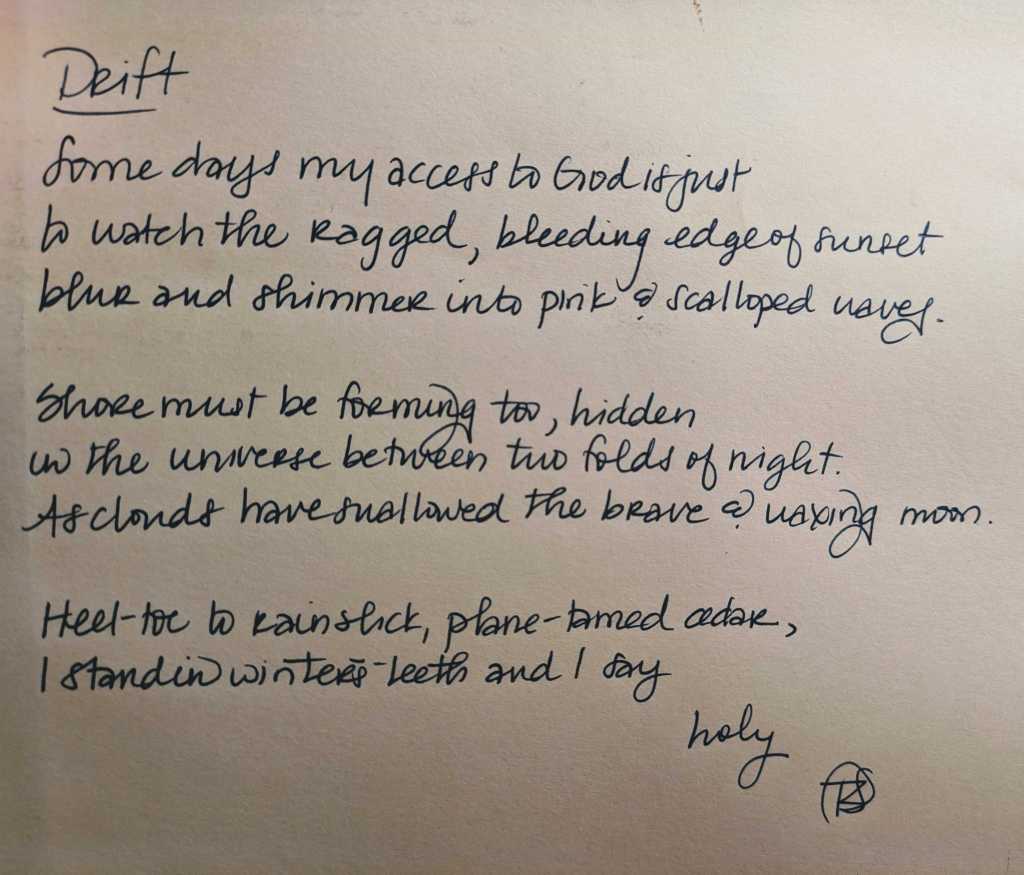 Drift
Some days my access to God is just
to watch the ragged, bleeding edge of sunset
blur and shimmer into pink & scalloped waves.
Shore must be forming too, hidden
in the universe between two folds of night.
As clouds have swallowed the brave & waxing moon.
Heel-toe to rainslick, plane-tamed cedar,
I stand in winter's teeth and I say
holy